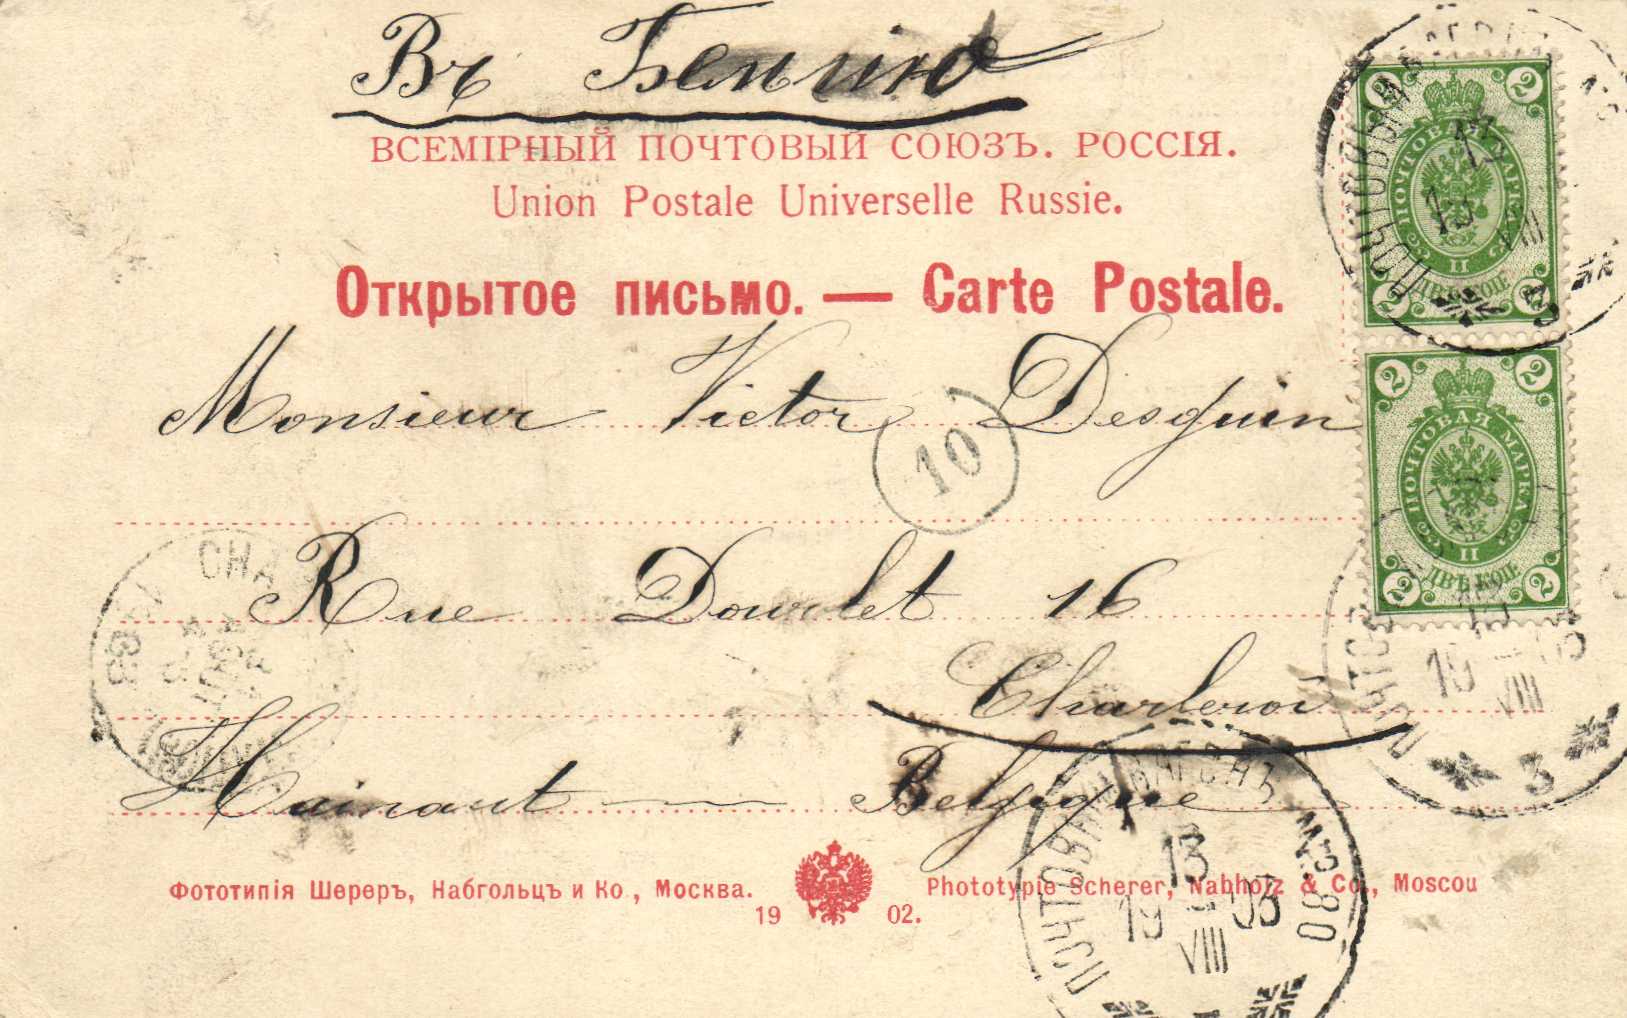 Въ Бельгію
ВСЕМІРНЫЙ ПОЧТОВЫЙ СОЮЗЪ. РОССІЯ.
Union Postale Universelle Russie.
Открытое письмо. — Carte Postale.
Monsieur Victor Desguin
10
Rue Dourlet 16
Charleroi
Hainaut — Belgique
Фототипія Шереръ, Набгольцъ и Ко, Москва.
1902.
Phototypie Scherer, Nabholz & Co., Moscou
2 2
ПОЧТОВАЯ МАРКА
II
ДВѢ КОП
2 2
2 2
ПОЧТОВАЯ МАРКА
II
ДВѢ КОП
2 2
ПОЧТОВЫЙ
13
19 VIII
3
ПОЧТО
19 VIII 03
3
ПОЧТОВЫЙ ВАГОНЪ № 80
13
19 VIII 03
CHA